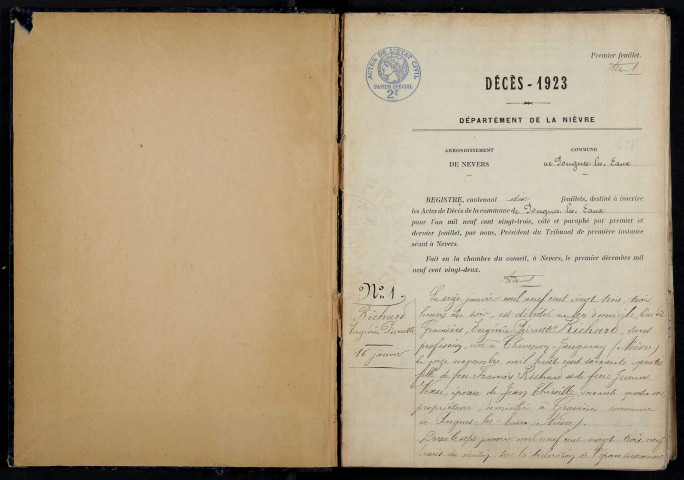 Premier feuillet.
ACTES DE L'ÉTAT CIVIL
PAPIER SPÉCIAL
2F
DÉCÈS - 1923
DÉPARTEMENT DE LA NIÈVRE
ARRONDISSEMENT
DE NEVERS
COMMUNE
DE Pougues-les-Eaux
REGISTRE, contenant dix feuillets, destiné à inscrire
les Actes de Décès de la commune de Pougues-les-Eaux
pour l'an mil neuf cent vingt-trois, côté et paraphé par premier et
dernier feuillet, par nous, Président du Tribunal de première instance
séant à Nevers.
Fait en la chambre du conseil, à Nevers, le premier décembre mil
neuf cent vingt-deux.
No 1.
Richard
Eugénie Pierrette
16 janvier
Le seize janvier mil neuf cent vingt trois, trois
heures du soir, est décédée en son domicile,
Eugénie Pierrette Richard, sans
profession, née à Chevenon (Nièvre)
le onze novembre mil huit cent soixante quatre
fille de feu François Richard et de feue Jeanne
épouse de Jean soixante quatre ans
propriétaire, domicilié à commune
de Pougues-les-Eaux (Nièvre).
janvier mil neuf cent vingt trois, neuf
heures du matin, sur la déclaration de